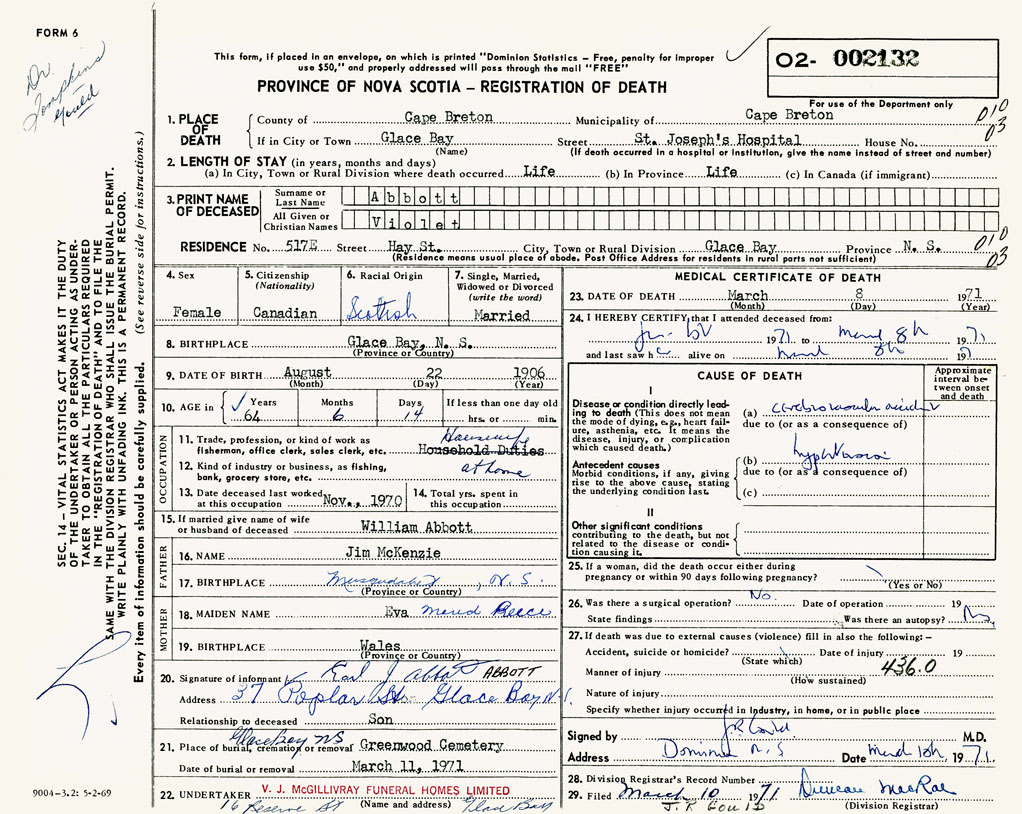 FORM 6
Dr.
Tompkins
Gould
This form, if placed in an envelope, on which is printed "Dominion Statistics – Free, penalty for improper
use $50," and properly addressed will pass through the mail "FREE"
02- 002132
PROVINCE OF NOVA SCOTIA – REGISTRATION OF DEATH
For use of the Department only
1. PLACE OF DEATH County of Cape Breton Municipality of Cape Breton 010
03
If in City or Town Glace Bay Street St. Joseph's Hospital House No.
(Name) (If death occurred in a hospital or institution, give the name instead of street and number)
2. LENGTH OF STAY (in years, months and days)
(a) In City, Town or Rural Division where death occurred Life (b) In Province Life (c) In Canada (if immigrant)
3. PRINT NAME OF DECEASED Surname or Last Name Abbott
All Given or Christian Names Violet
RESIDENCE No. 517E Street Hay St. City, Town or Rural Division Glace Bay Province N. S. 010
03
(Residence means usual place of abode. Post Office Address for residents in rural parts not sufficient)
4. Sex
Female
5. Citizenship
(Nationality)
Canadian
6. Racial Origin
Scottish
7. Single, Married,
Widowed or Divorced
(write the word)
Married
8. BIRTHPLACE Glace Bay, N. S.
(Province or Country)
9. DATE OF BIRTH August 22 1906
(Month) (Day) (Year)
10. AGE in Years Months Days If less than one day old
64 6 14 hrs. or min.
OCCUPATION
11. Trade, profession, or kind of work as Housewife
fisherman, office clerk, sales clerk, etc. Household Duties
12. Kind of industry or business, as fishing, at home
bank, grocery store, etc.
13. Date deceased last worked at this occupation Nov., 1970
14. Total yrs. spent in this occupation
15. If married give name of wife
or husband of deceased William Abbott
FATHER
16. NAME Jim McKenzie
17. BIRTHPLACE , N. S.
(Province or Country)
MOTHER
18. MAIDEN NAME Eva Maud Reece
19. BIRTHPLACE Wales
(Province or Country)
20. Signature of informant Earl J Abbott ABBOTT
Address 37 Poplar St. Glace Bay N.S.
Relationship to deceased Son
Glace Bay NS
21. Place of burial, cremation or removal Greenwood Cemetery
Date of burial or removal March 11, 1971
22. UNDERTAKER V. J. McGILLIVRAY FUNERAL HOMES LIMITED
16 Reserve St (Name and address) Glace Bay
MEDICAL CERTIFICATE OF DEATH
23. DATE OF DEATH March 8 1971
(Month) (Day) (Year)
24. I HEREBY CERTIFY that I attended deceased from:
1971 to March 8th 1971
and last saw h alive on March 8th 197
CAUSE OF DEATH
Approximate
interval be-
tween onset
and death
I
Disease or condition directly lead-
ing to death (This does not mean
the mode of dying, e.g., heart fail-
ure, asthenia, etc. It means the
disease, injury, or complication
which caused death.)
(a) cerebrovascular accident
due to (or as a consequence of)
Antecedent causes
Morbid conditions, if any, giving
rise to the above cause, stating
the underlying condition last.
(b) hypertension
due to (or as a consequence of)
(c)
II
Other significant conditions
contributing to the death, but not
related to the disease or condi-
tion causing it.
25. If a woman, did the death occur either during
pregnancy or within 90 days following pregnancy?
(Yes or No)
26. Was there a surgical operation? No. Date of operation 19
State findings Was there an autopsy? No.
27. If death was due to external causes (violence) fill in also the following: –
Accident, suicide or homicide? Date of injury 19
(State which)
Manner of injury 436.0
(How sustained)
Nature of injury
Specify whether injury occurred in Industry, in home, or in public place
Signed by J R Gould M.D.
Address Dominion N.S Date March 10th 1971
28. Division Registrar's Record Number
29. Filed March 10 1971 Duncan MacRae
J. R GOULD (Division Registrar)
SEC. 14 – VITAL STATISTICS ACT MAKES IT THE DUTY
OF THE UNDERTAKER OR PERSON ACTING AS UNDER-
TAKER TO OBTAIN ALL THE PARTICULARS REQUIRED
IN THE "REGISTRATION OF DEATH" AND TO FILE THE
SAME WITH THE DIVISION REGISTRAR WHO SHALL ISSUE THE BURIAL PERMIT.
WRITE PLAINLY WITH UNFADING INK. THIS IS A PERMANENT RECORD.
Every item of information should be carefully supplied. (See reverse side for instructions.)
9004-3.2: 5-2-69